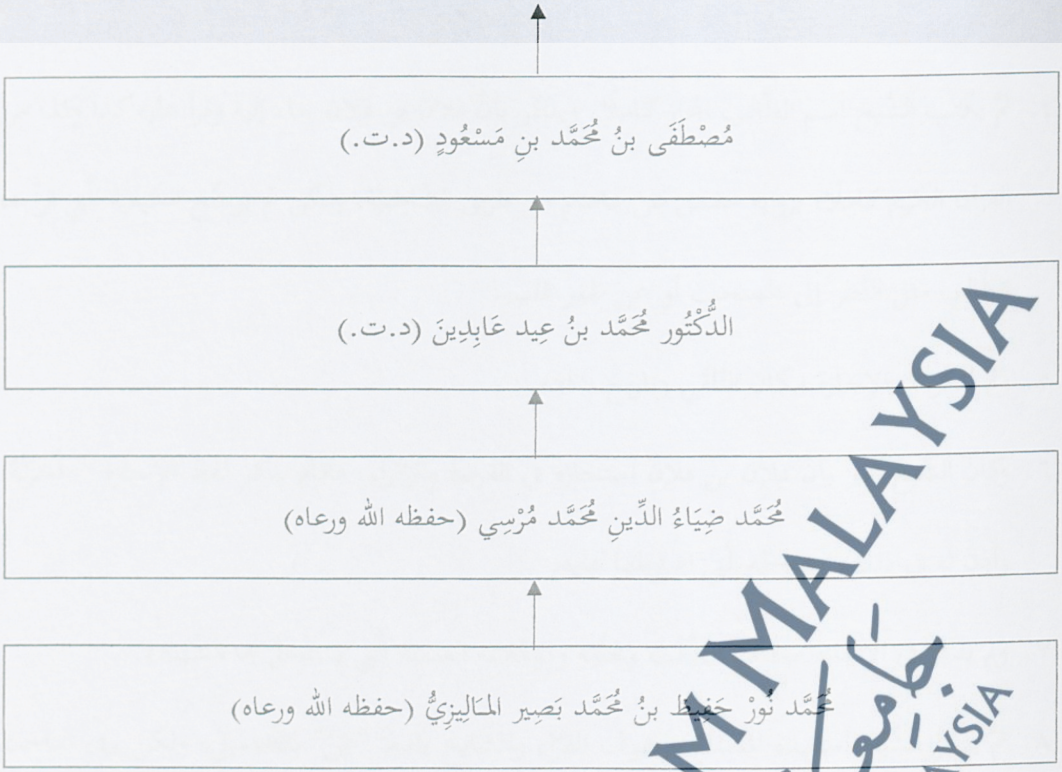 مُصْطَفَى بنُ مُحَمَّد بنِ مَسْعُودٍ (د.ت.)
الدُّكْتُور مُحَمَّد بنُ عِيد عَابِدِينَ (د.ت.)
مُحَمَّد ضِيَاءُ الدِّينِ مُحَمَّد مُرْسِي (حفظه الله ورعاه)
مُحَمَّد نُورْ حَفِيظ بنُ مُحَمَّد بَصِير المَالِيزِيُّ (حفظه الله ورعاه)
M MALAYSIA
YSIA